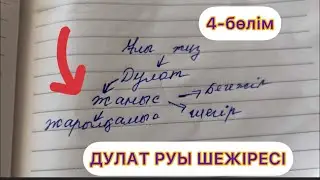 4-бөлім
Ұлы жүз
Дулат
Жаныс
Бекжір
шегір
жарылқамыс
ДУЛАТ РУЫ ШЕЖІРЕСІ